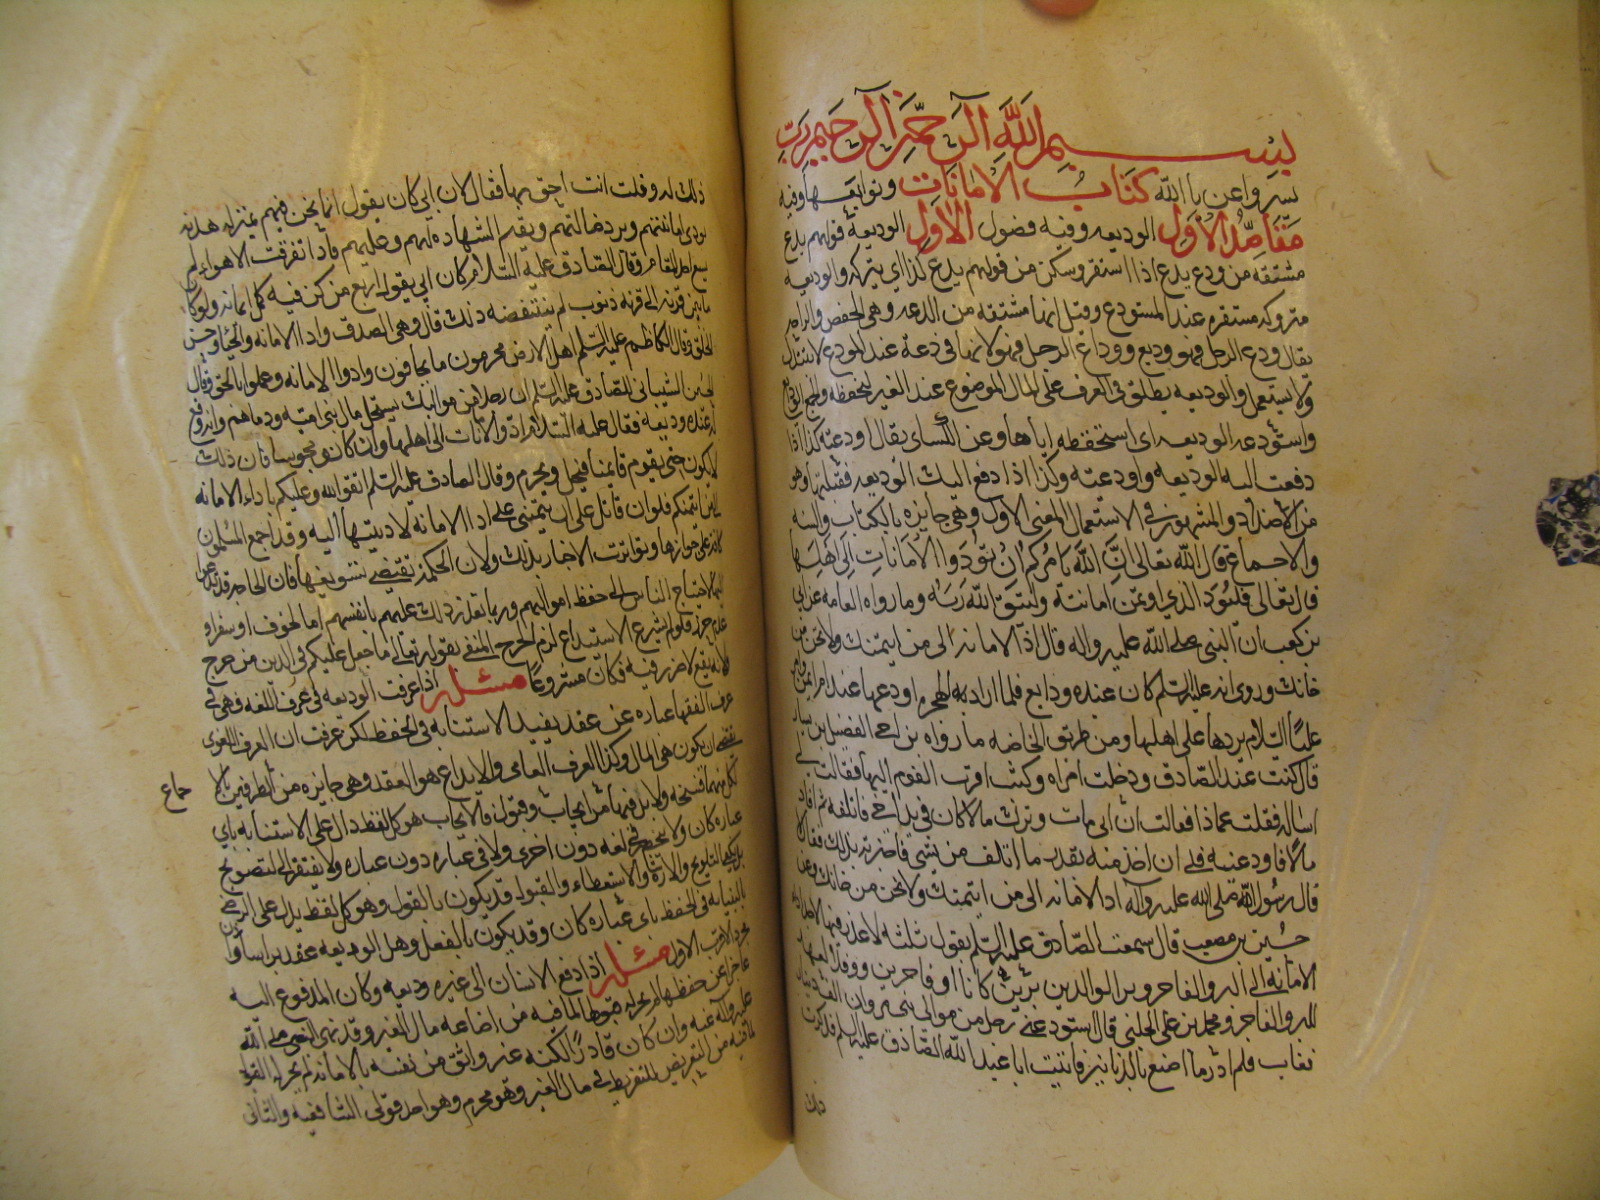 بسم الله الرحمن الرحيم رب
يسر واعن يا الله كتاب الامانات وتوابعها وفيه
مقاصد الاول الوديعه وفيه فصول الاول الوديعة قولهم يدع
مشتقه من ودع يدع اذا استقر وسكن من قولهم يدع كذا اي يتركه والوديعه
متروكه مستقره عند المستودع وقيل انها مشتقه من الدعه وهي الخفض والراحه
يقال ودع الرجل فهو وديع ووداع الرجل فهو لانها في دعة عند المودع لا تتبدل
ولا تستعمل والوديعه يطلق في العرف على المال الموضوع عند الغير ليحفظه والجمع الودايع
واستودعه الوديعه اي استحفظه اياها وعن الكسائي يقال اودعته كذا اذا
دفعت اليه الوديعه واودعته وكذا اذا دفع اليك الوديعه فقبلتها وهو
من الاضداد والمشهور في الاستعمال المعنى الاول وهي جايزه بالكتاب والسنه
والاجماع قال الله تعالى ان الله يامركم ان تؤدوا الامانات الى اهلها
قال تعالى فليؤد الذي اؤتمن امانته وليتق الله ربه وما رواه العامه عن ابي
بن كعب ان النبي صلى الله عليه واله قال اد الامانه الى من ايتمنك ولا تخن من
خانك وروى انه عليه السلم كان عنده ودايع فلما اراد الهجره اودعها عند ام ايمن وامر
عليا عليه السلام بردها على اهلها ومن طريق الخاصه ما رواه بن اخي الفضيل بن يسار
قال كنت عند الصادق ودخلت امراه وكنت اقرب القوم اليها فقالت لي
اساله فقلت عماذا فقالت ان ابي مات وترك مالا كان في يد اخي فاتلفه ثم افاد
مالا فاودعنيه فلي ان اخذ منه بقدر ما اتلف من شي فاخبرته بذلك فقال لا
قال رسول الله صلى الله عليه وآله اد الامانه الى من ايتمنك ولا تخن من خانك وعن
حسين بن مصعب قال سمعت الصادق عليه السلم يقول ثلثة لا عذر فيها لاحد اداء
الامانه الى البر والفاجر وبر الوالدين برين كانا او فاجرين ووفا بالعهد
للبر والفاجر ومحمد بن علي الحلبي قال استودعني رجل من موالي بني مروان الف دينار
فغاب فلم ادر ما اصنع بالدنانير فاتيت ابا عبد الله الصادق عليه السلم فذكرت
ذلك
ذلك له وقلت انت احق بها فقال لا ان ابي كان يقول انما نحن فيهم بمنزله هدنه
نودي امانتهم ونرد ضالتهم ونقيم الشهاده لهم وعليهم فاذا تفرقت الاهواء لم
يسع احد المقام وقال الصادق عليه السلام كان ابي يقول اربع من كن فيه كمل ايمانه ولو كان
ما بين قرنه الى قدمه ذنوب لم ينتقصه ذلك قال وهي الصدق وادا الامانه والحيا وحسن
الخلق وقال الكاظم عليه السلم اهل الارض مرحومون ما يخافون وادوا الامانه وعملوا بالحق وقال
الحسين الشيباني للصادق عليه السلم ان رجلا من مواليك يستحل مال بني اميه ودماهم وانه وقع
له عنده وديعه فقال عليه السلام ادوا الامانات الى اهلها وان كانوا مجوسا فان ذلك
لا يكون حتى يقوم قايمنا فيحل ويحرم وقال الصادق عليه السلم اتقوا الله وعليكم باداء الامانه
الى من ايتمنكم فلو ان قاتل علي ايتمنني على ادا الامانه لاديتها اليه وقد اجمع المسلمون
كافة على جوازها وتواترت الاخبار بذلك ولان الحكمة تقتضي تسويغها فان الحاجه قد تدعوا
اليها لاحتياج الناس الى حفظ اموالهم وربما تعذر ذلك عليهم بانفسهم اما لخوف او سفر او
عدم حرز فلو لم يشرع الاستيداع لزم الحرج المنفي بقوله تعالى ما جعل عليكم في الدين من حرج
ولانه نفع لا ضرر فيه فكان مشروعا مسئله اذا عرفت الوديعه في عرف اللغه وهي في
عرف الفقها عباره عن عقد يفيد الاستنابه في الحفظ لكن عرفت ان العرف اللغوي
يقتضي ان يكون هي المال وكذا العرف العامي والايداع هو العقد وهي جايزه من الطرفين بالا
جماع
لكل منهما فسخه ولا بد فيها من ايجاب وقبول فالايجاب هو كل لفظ دال على الاستنابه باي
عباره كان ولا ينحصر في لغه دون اخرى ولا في عباره دون عباره ولا يفتقر الى التصريح
بل يكفي التلويح والاشارة والاستعطاء والقبول قد يكون بالقول وهو كل لفظ يدل على الرضى
بالنيابه في الحفظ باي عباره كان وقد يكون بالفعل وهل الوديعه عقد براسه او اذن
مجرد الاقرب الاول مسئله اذا دفع الانسان الى غيره وديعه وكان المدفوع اليه
عاجزا عن حفظها لم يجز له قبولها لما فيه من اضاعه مال الغير وقد نهى النبي صلى الله
عليه وآله عنه وان كان قادرا لكنه غير واثق من نفسه بالامانه لم يجز له القبول
لما فيه من التعريض للتفريط في مال الغير وهو محرم وهو احد قولي الشافعيه والثاني